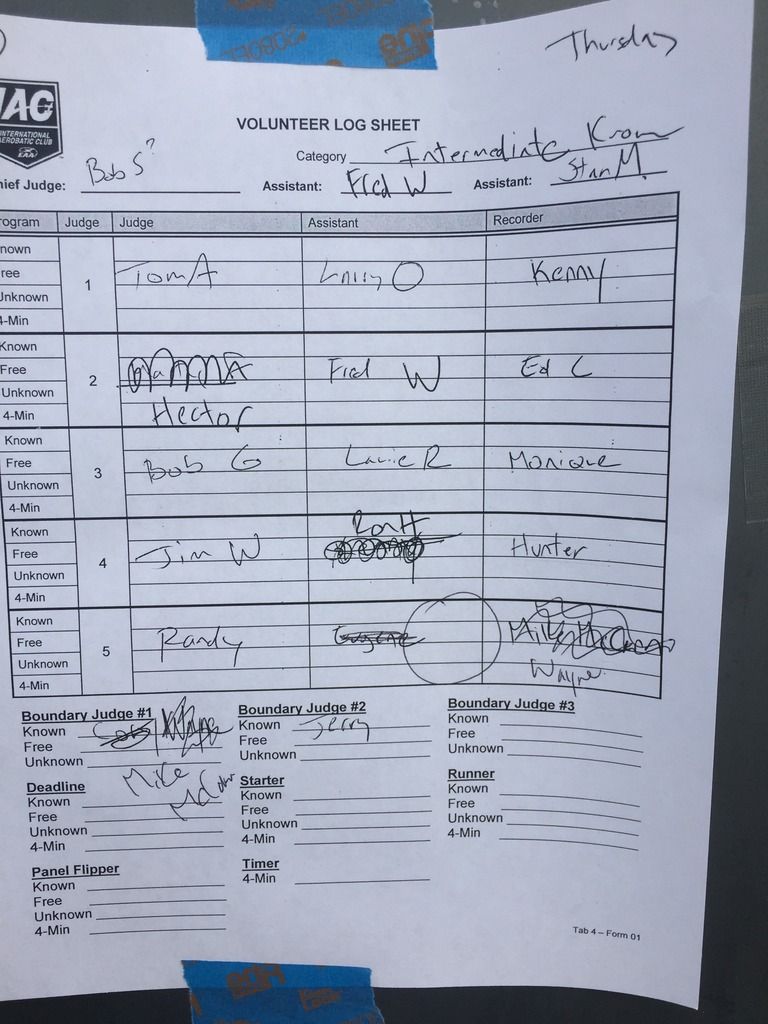 Thursday
IAC
INTERNATIONAL
AEROBATIC CLUB
EAA
VOLUNTEER LOG SHEET
Category Intermediate Known
hief Judge: Bob S? Assistant: Fred W Assistant: Stan M.
ogram Judge Judge Assistant Recorder
nown
ree 1 Tom A Larry O Kenny
Unknown
4-Min
Known
Free 2 Fred W Ed C
Unknown
4-Min Hector
Known
Free 3 Bob G R Monique
Unknown
4-Min
Known Ron H
Free 4 Jim W Hunter
Unknown
4-Min
Known
Free 5 Randy Eugene
Unknown Wayne
4-Min
Boundary Judge #1 Boundary Judge #2 Boundary Judge #3
Known Known Jerry Known
Free Free Free
Unknown Unknown Unknown
Mike
Deadline Starter Runner
Known Known Known
Free Free Free
Unknown Unknown Unknown
4-Min 4-Min 4-Min
Panel Flipper Timer
Known 4-Min
Free
Unknown
4-Min
Tab 4 – Form 01